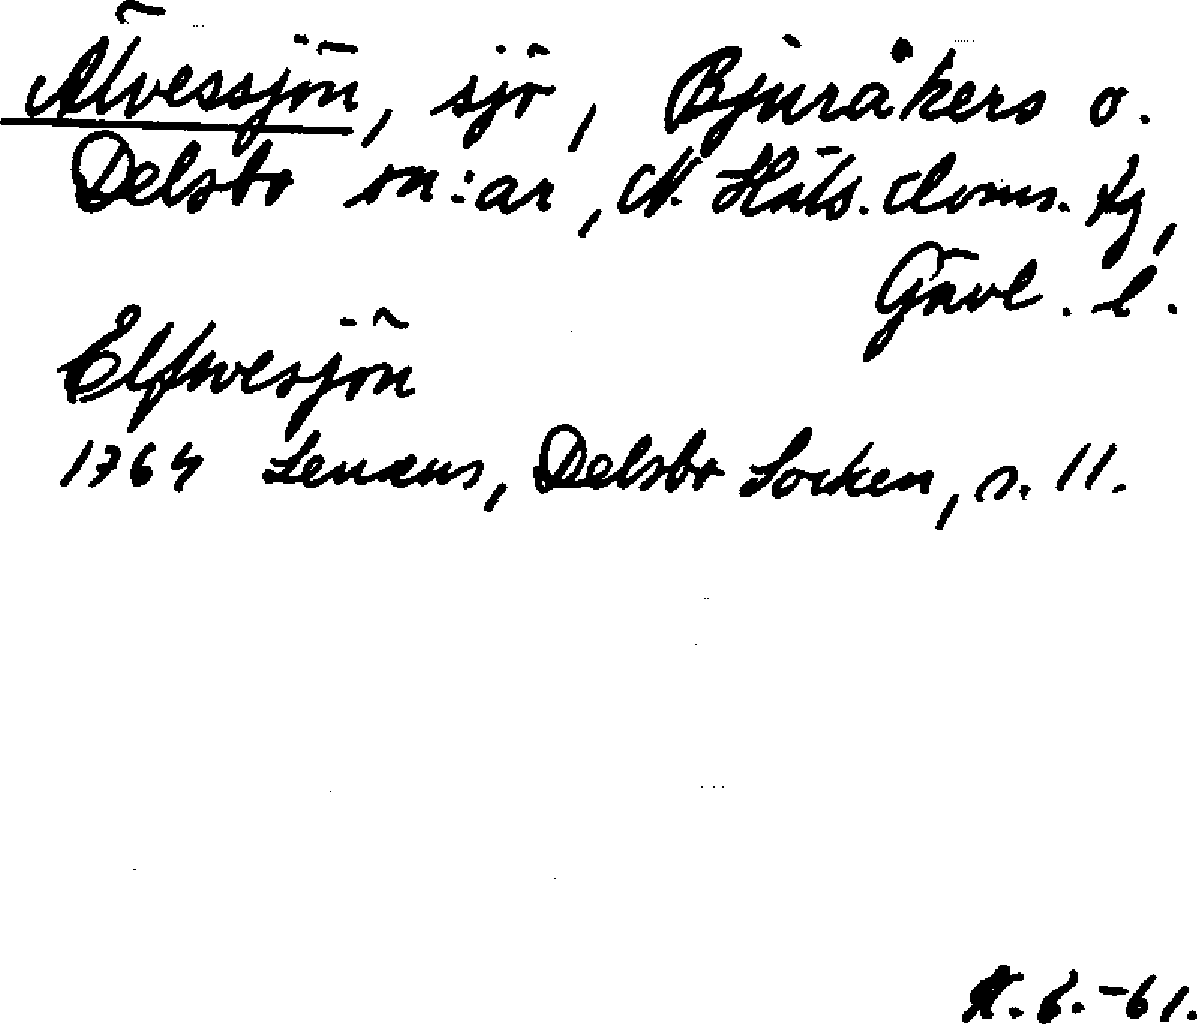 Älvessjön, sjö, Bjuråkers o.
Delsbo sn:ar, N. Häls. doms. tg,
Gävl. l.
Elfwesjön
1764 Lenæus, Delsbo Socken, s. 11.
-61.